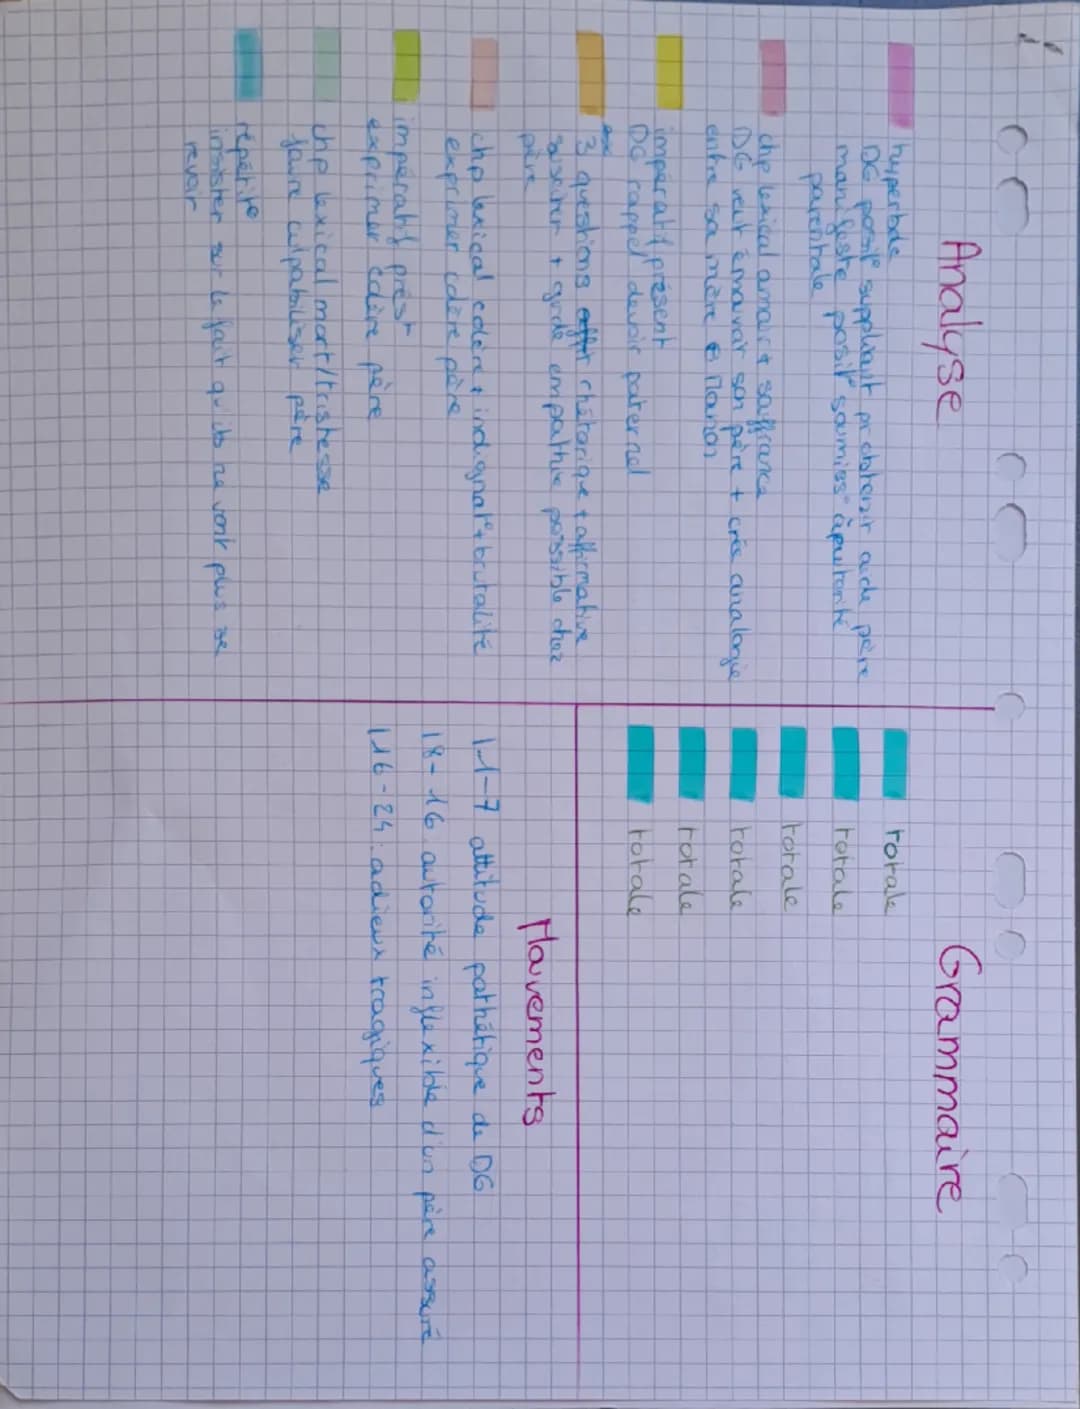 Analyse
hyperbole
DG posit° suppliant pr obtenir aide père
manifeste posit° soumiss° à autorité
parentale
chp lexical amour + souffrance
DG veut émouvoir son père + crée analogie
entre sa mère et Manon
impératif présent
DG rappel devoir paternel
3 questions rhétorique + affirmative
susciter + grde empathie possible chez
père
chp lexical colère + indignat° + brutalité
exprimer colère père
impératif prést
exprimer colère père
chp lexical mort/tristesse
faire culpabiliser père
répétit°
insister sur le fait qu'ils ne vont plus se
revoir
Grammaire
totale
totale
totale
totale
totale
totale
Mouvements
l 1-7 attitude pathétique de DG
l 8-16 autorité inflexible d'un père assuré
l 16-24: adieux tragiques